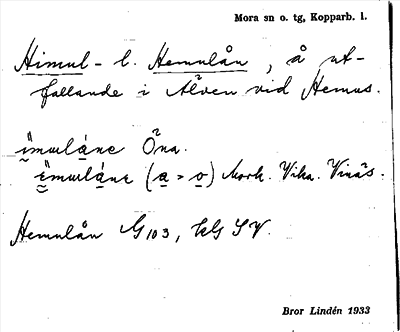 Mora sn o. tg, Kopparb. l.
Himul- l. Hemulån, å ut-
fallande i Älven vid Hemus.
Öna.
(a = o) Mork. Vika. Vinäs.
Hemulån G 103, hlG SV.
Bror Lindén 1933